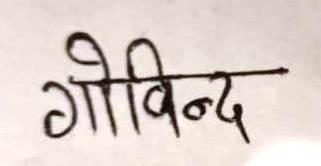 गोविन्द